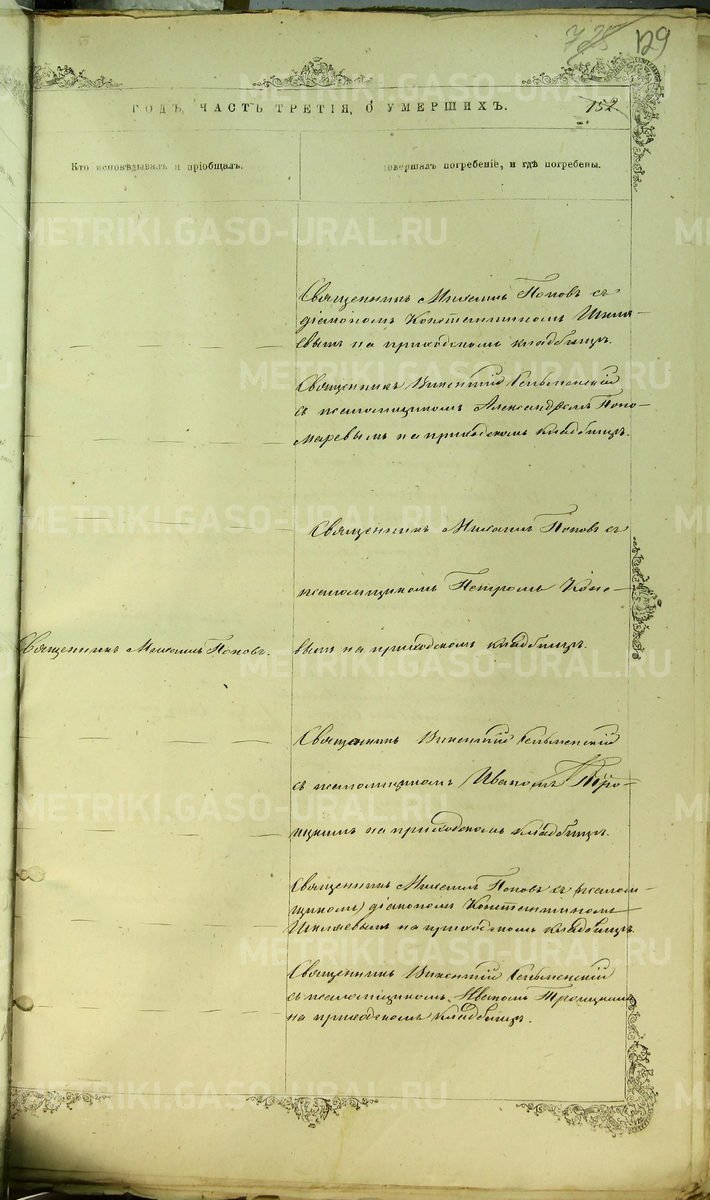 129
ГОДЪ, ЧАСТЬ ТРЕТІЯ, О УМЕРШИХЪ.
152
Кто исповѣдывалъ и пріобщалъ.
совершалъ погребеніе, и гдѣ погребены.
Священникъ Михаилъ Поповъ съ
діакономъ Константиномъ Шкля-
евымъ на приходскомъ кладбищѣ.
Священникъ Викентій
съ псаломщикомъ Александромъ Поно-
маревымъ на приходскомъ кладбищѣ.
Священникъ Михаилъ Поповъ съ
псаломщикомъ Петромъ Коно-
Священникъ Михаилъ Поповъ.
вымъ на приходскомъ кладбищѣ.
Священникъ Викентій
съ псаломщикомъ Иваномъ Трои-
цкимъ на приходскомъ кладбищѣ.
Священникъ Михаилъ Поповъ съ (псалом-
щикомъ) діакономъ Константиномъ
Шкляевымъ на приходскомъ кладбищѣ.
Священникъ Викентій
съ псаломщикомъ Иваномъ Троицкимъ
на приходскомъ кладбищѣ.
METRIKI.GASO-URAL.RU